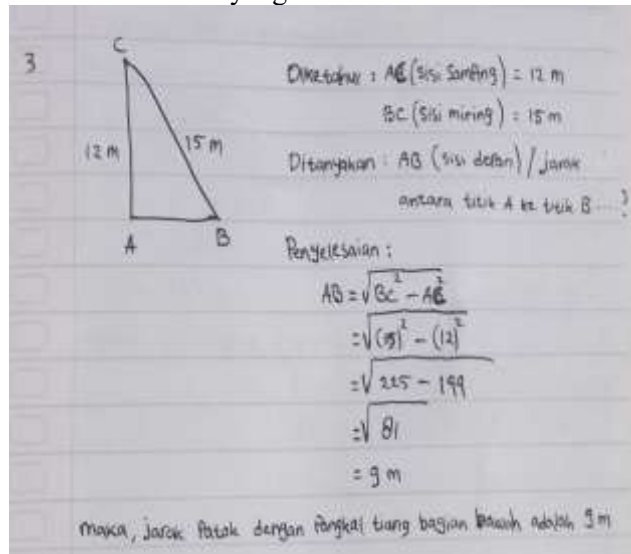 3
C
12 m
15 m
A
B
Diketahui : AC (sisi samping) = 12 m
BC (sisi miring) = 15 m
Ditanyakan : AB (sisi depan) / jarak
antara titik A ke titik B ....?
Penyelesaian :
AB = √BC² - AC²
= √(15)² - (12)²
= √225 - 144
= √81
= 9 m
maka, jarak Patok dengan Pangkal tiang bagian bawah adalah 9 m